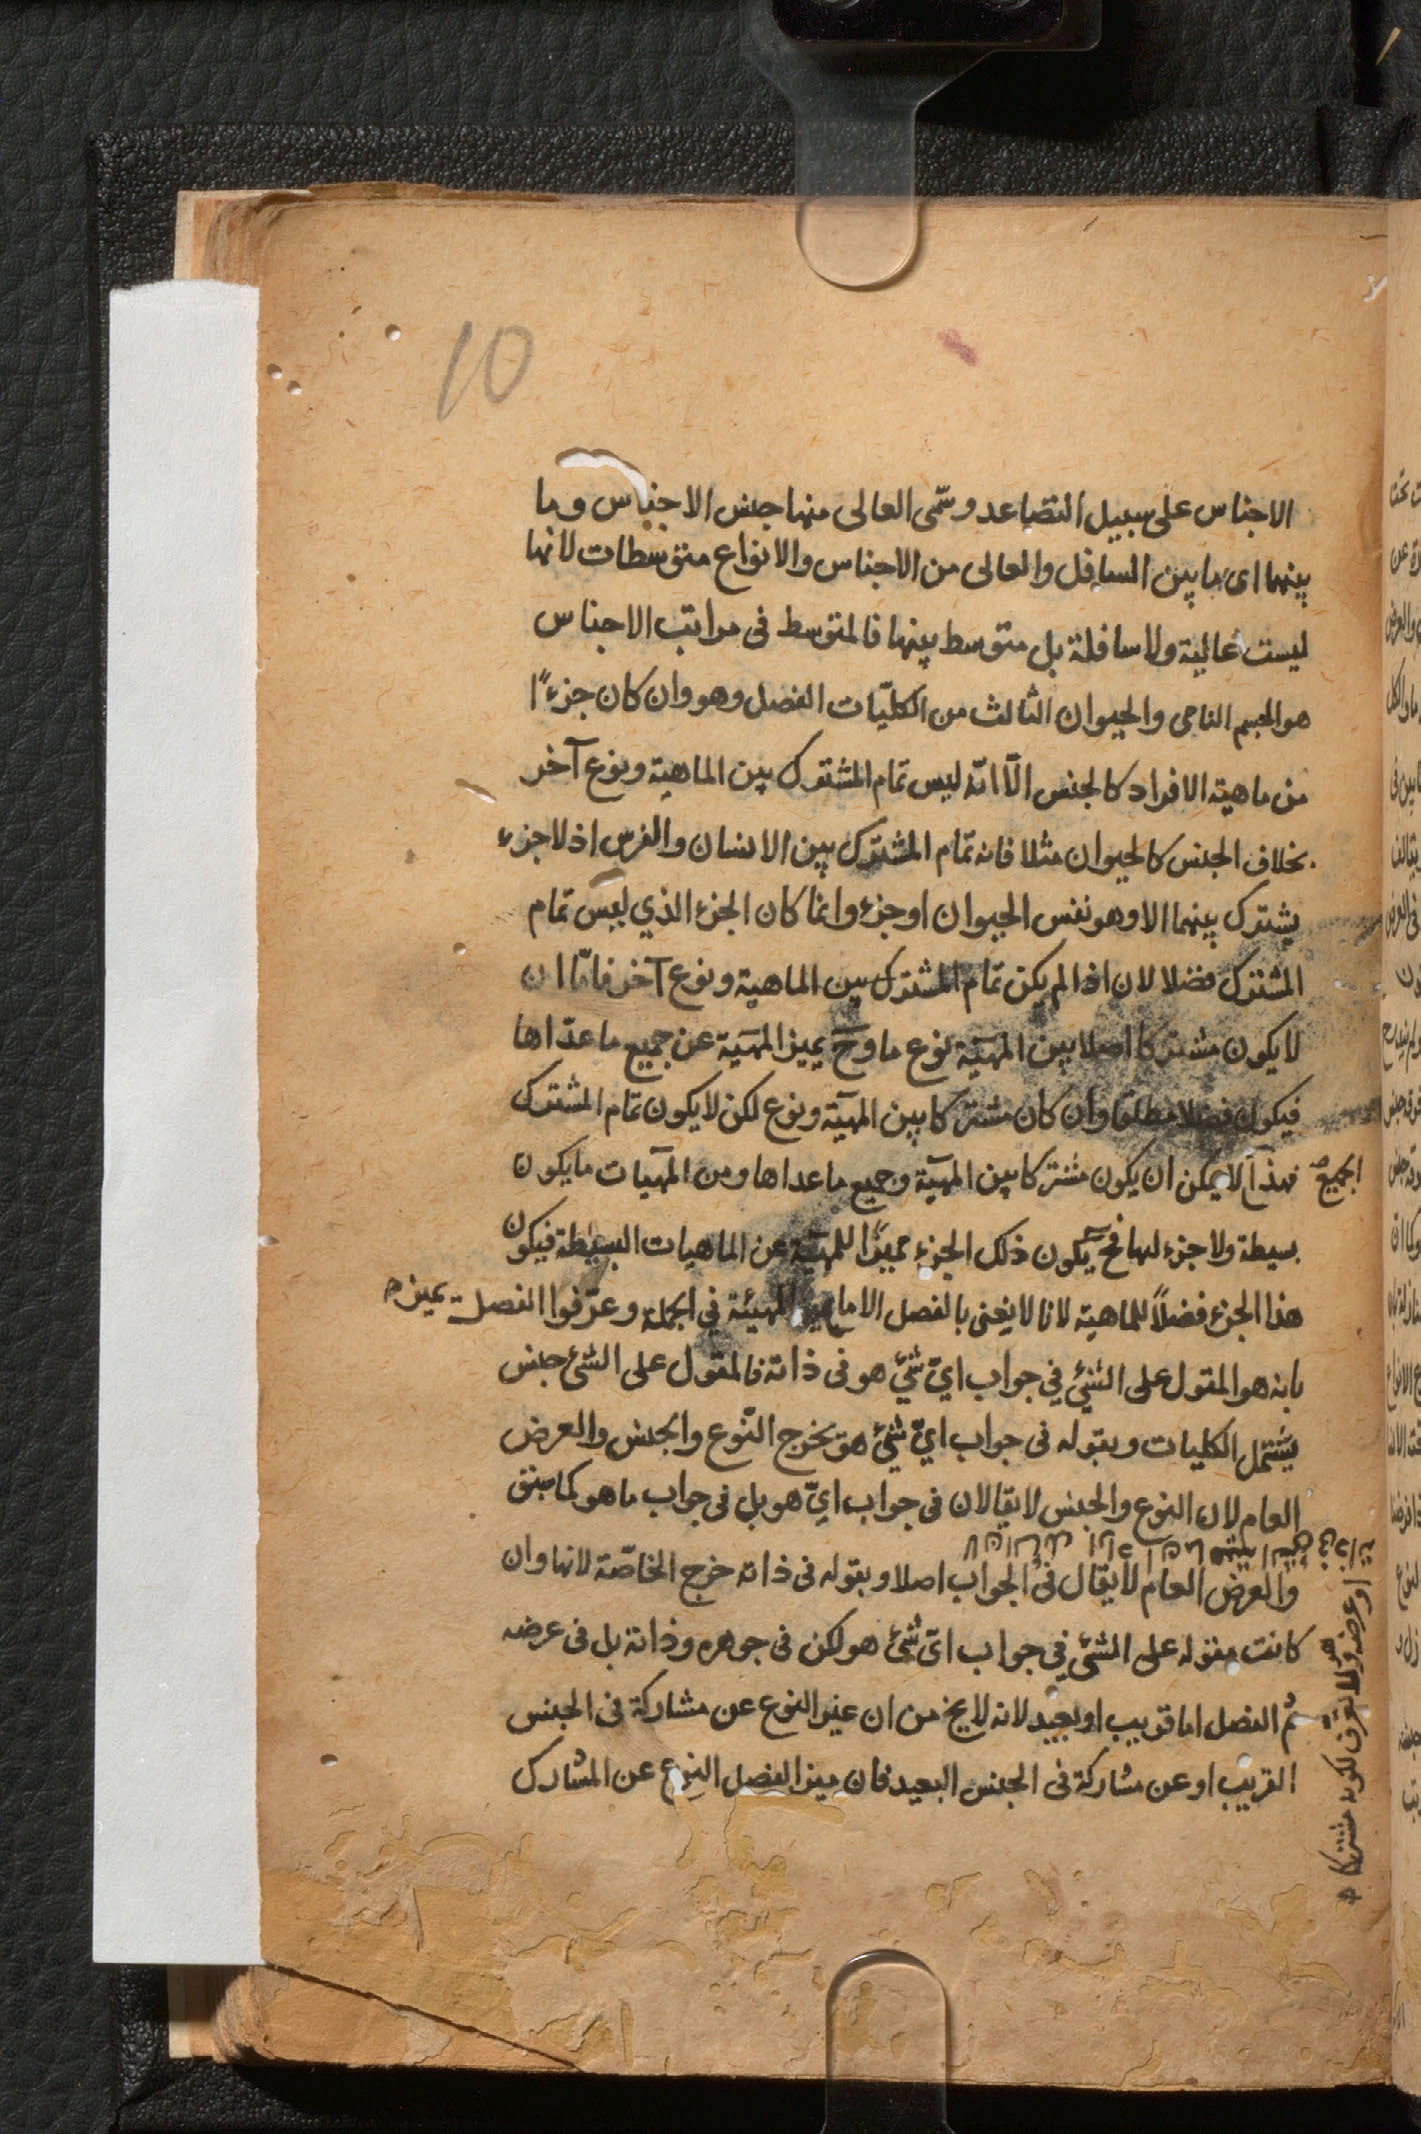 10
الاجناس على سبيل التصاعد وسمّى العالى منها جنس الاجناس وما
بينهما اى ما بين السافل والعالى من الاجناس والانواع متوسطات لانها
ليست عالية ولا سافلة بل متوسط بينها فالمتوسط فى مراتب الاجناس
هو الجسم النامى والحيوان الثالث من الكليّات الفصل وهو وان كان جزءًا
من ماهية الافراد كالجنس الّا انّه ليس تمام المشترك بين الماهية ونوع آخر
بخلاف الجنس كالحيوان مثلا فانه تمام المشترك بين الانسان والفرس اذ لا جزء
يشترك بينهما الا وهو نفس الحيوان او جزء وانما كان الجزء الذي ليس تمام
المشترك فصلا لان اذا لم يكن تمام المشترك بين الماهية ونوع آخر فامّا ان
لا يكون مشتركا اصلا بين المهيّة نوع ما وح يميز المهيّة عن جميع ما عداها
فيكون فصلا مطلقا وان كان مشتركا بين المهيّة ونوع لكن لا يكون تمام المشترك
فهذا لا يمكن ان يكون مشتركا بين المهيّة وجميع ما عداها ومن المهيّات ما يكون
الجميع
بسيطة ولا جزء لها فح يكون ذلك الجزء مميزًا للمهيّة عن الماهيات البسيطة فيكون
هذا الجزء فصلاً للماهية لانا لا يعنى بالفصل الا ما المهيّة في الجملة وعرّفوا الفصل
يميزه
بانه هو المقول على الشئ في جواب ايّ شئ هو فى ذاته فالمقول على الشئ جنس
يشتمل الكليات وبقوله فى جواب ايّ شئ هو يخرج النّوع والجنس والعرض
العام لان النوع والجنس لا يقالان فى جواب ايّ هو بل فى جواب ما هو كما سبق
والعرض العام لا يقال فى الجواب اصلا وبقوله فى ذاته خرج الخاصّة لانها وان
كانت مقوله على الشئ في جواب اىّ شئ هو لكن فى جوهره وذاته بل فى عرضه
ثم الفصل اما قريب او بعيد لانه لا يخ من ان عيز النوع عن مشاركة فى الجنس
القريب او عن مشاركة فى الجنس البعيد فان ميز الفصل النوع عن المشارك